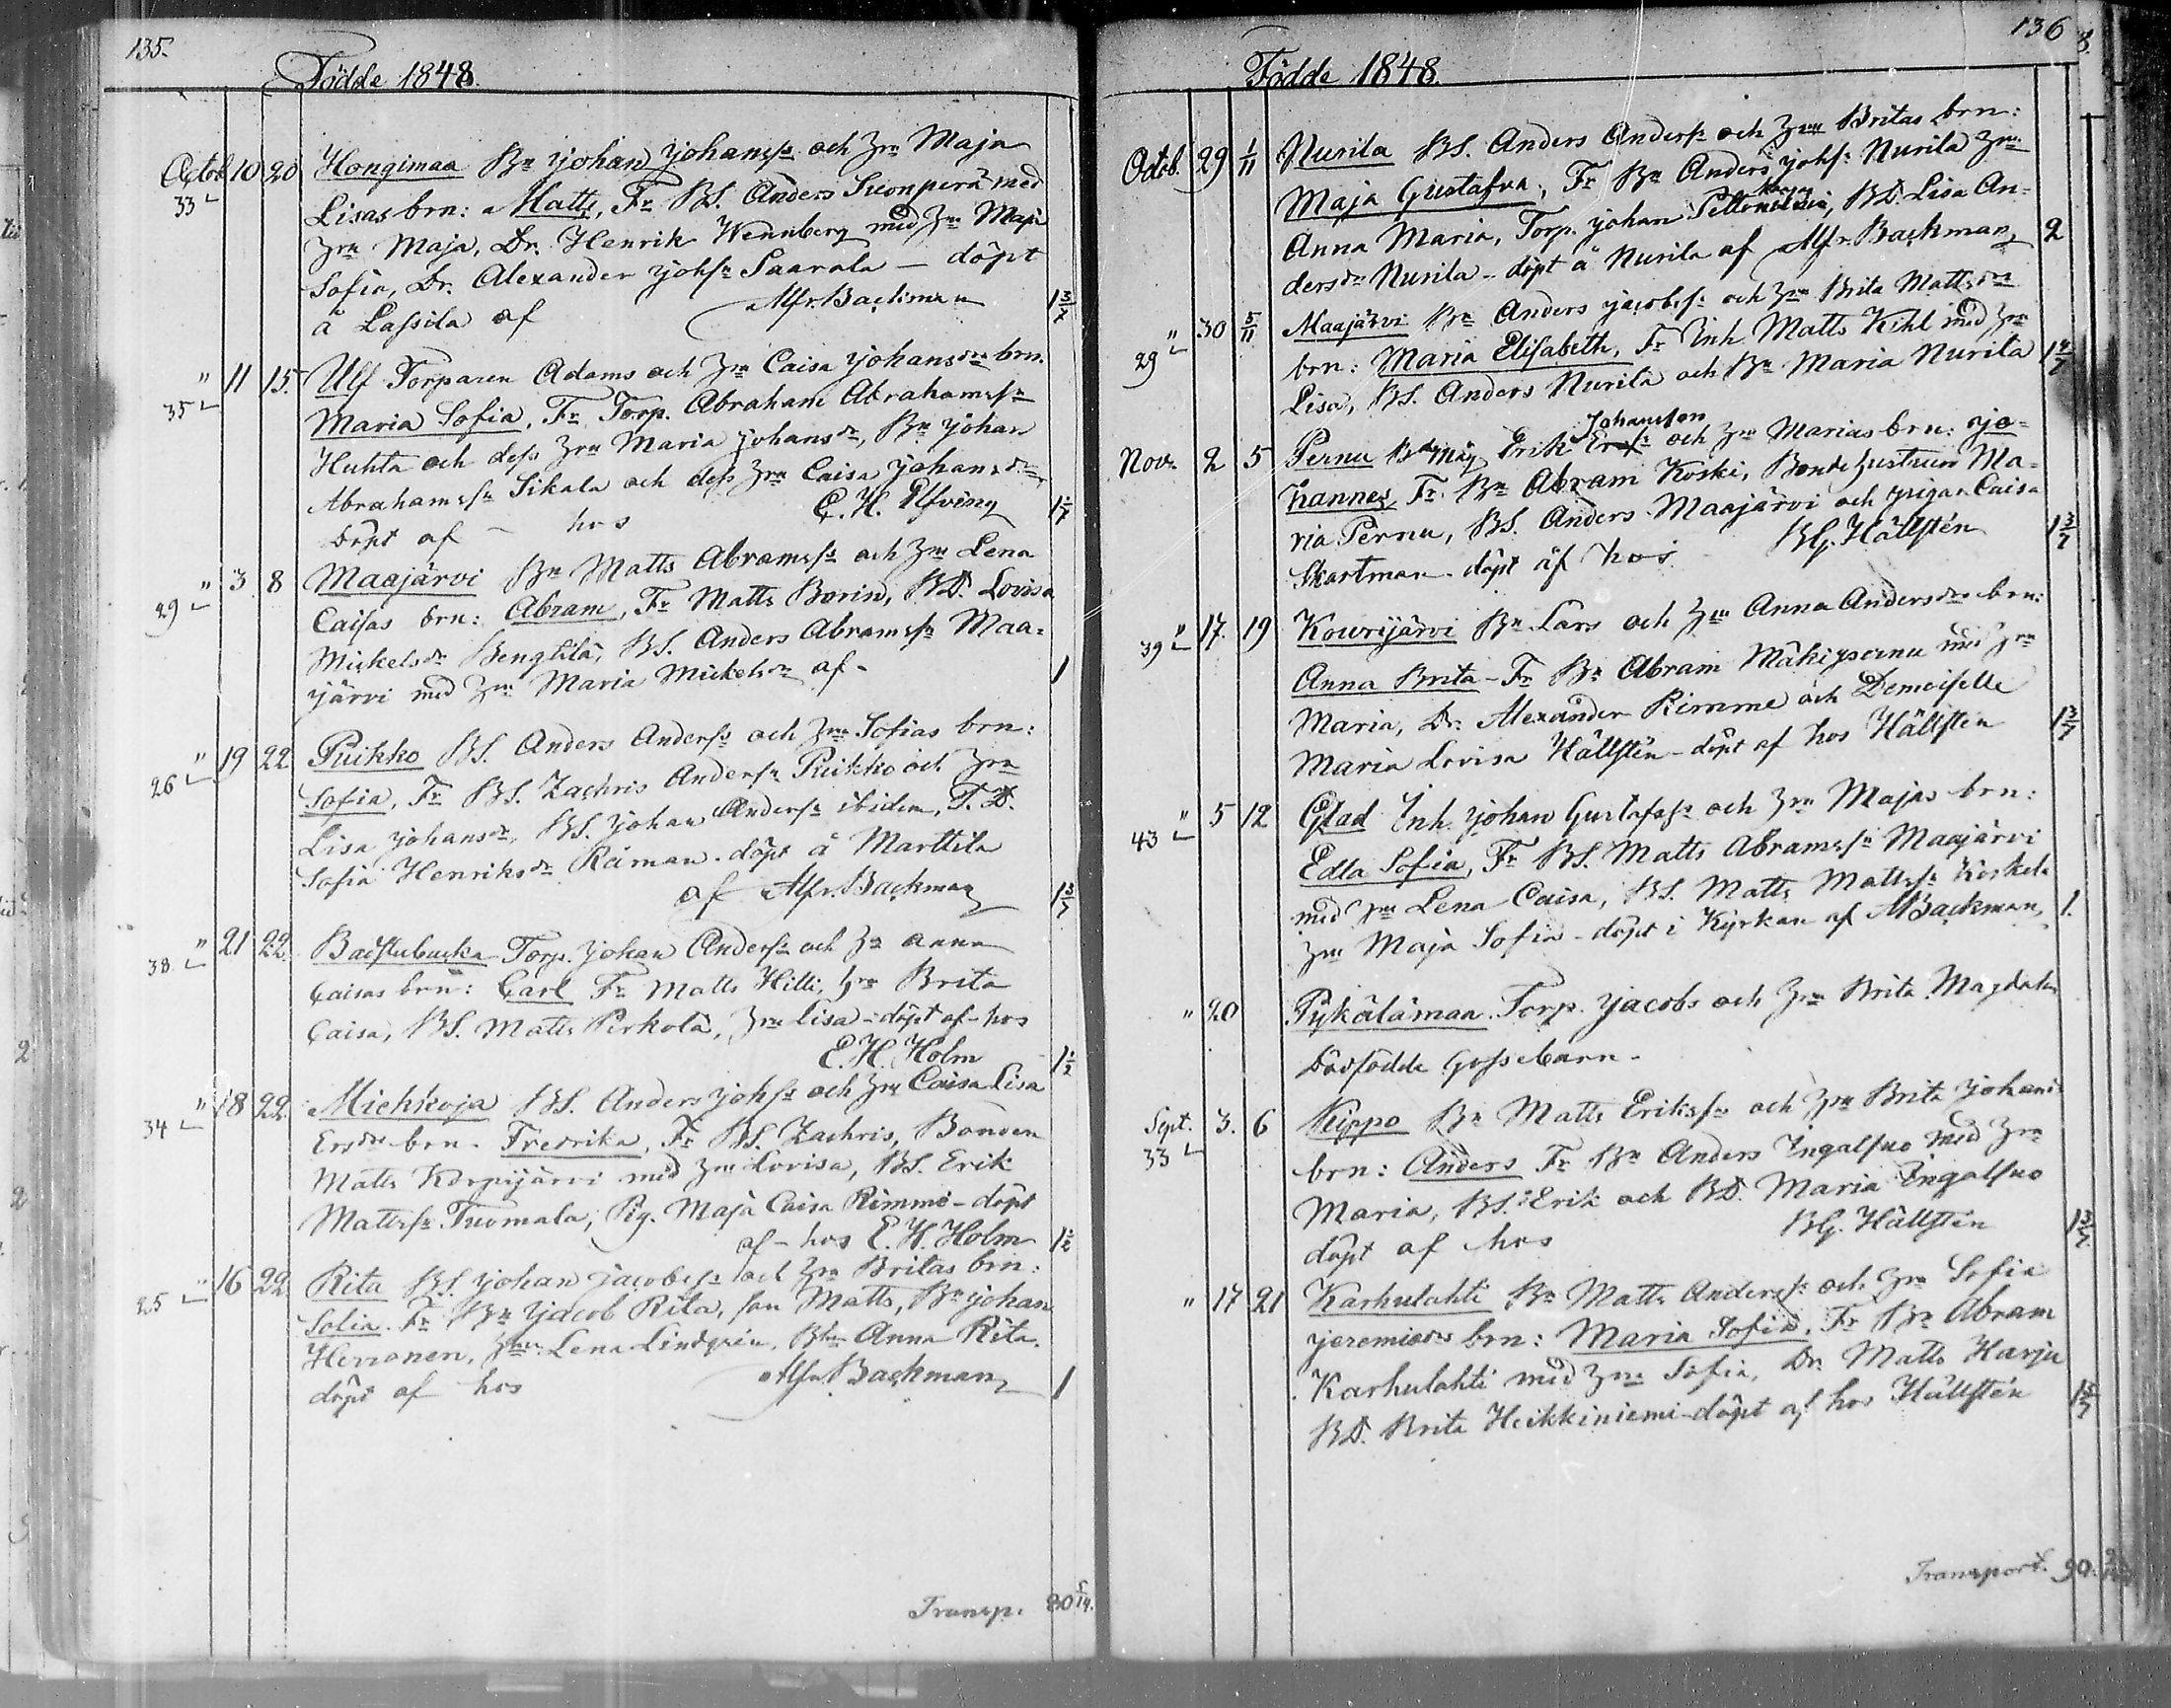 135.
Födde 1848.
Octob. 10 20 Hongimaa Bn Johan Johanss: och Hru Maja
33 Lisas brn: Matts, Fr BS. Anders Suonperä med
Hru Maja, Dr. Henrik Wennberg med Hru Maja
Sofia, Dr. Alexander Johsn Saarala — döpt
å Lassila af Alfr. Backman 1 3/7
" 11 15. Ulf Torparen Adams och Hru Caisa Johansdrs brn.
35 Maria Sofia, Fr. Torp. Abraham Abrahamssn
Huhta och dess Hru Maria Johansdr, Bn Johan
Abrahamssn Sikala och dess Hru Caisa Johansdr,
döpt af - hos E. H. Elfving
" 3 8 Maajärvi Bn Matts Abramss: och Hru Lena
29 Caisas brn: Abram, Fr Matts Borin, BD. Lovisa
Mickelsdr Bengtilä, BS. Anders Abramssn Maa-
järvi med Hru Maria Mickelsdr af - 1
" 19 22. Puikko BS. Anders Anderss: och Hru Sofias brn:
26 Sofia, Fr BS. Zachris Anderssn Puikko och Hru
Lisa Johansdr, BS. Johan Anderssn ibidem, T. D.
Sofia Henriksdr Raiman. döpt å Marttila
af Alfr. Backman 1 3/7
" 21 22. Badstubacka Torp. Johan Anderssn och Hu Anna
38 Caisas brn: Carl Fr Matts Hilli, Hru Brita
Caisa, BS. Matts Perkola, Hru Lisa - döpt af - hos
E. H. Holm 1 1/2
" 18 22. Michkoja BS. Anders Johss: och Hru Caisa Lisa
34 Ersdrs brn. Fredrika, Fr BS. Zachris, Bonden
Matts Korpijärvi med Hru Lovisa, BS. Erik
Mattssn Tuomala, Pig. Maja Caisa Rimmi - döpt
af - hos E. H. Holm 1 1/2
" 16 22. Rita BS. Johan Jacobss: och Hru Britas brn:
25 Sofia. Fr Bn Jacob Rita, son Matts, Bn Johan
Herronen, Lena Lindgrén, Anna Rita.
döpt af hos Alfr. Backman 1
Transp. 80 5/14.
136
Födde 1848.
Octob. 29 1/11 Nurila BS. Anders Anderss: och Hru Britas brn:
Maja Gustafva, Fr Bn Anders Johs: Nurila Hru
Anna Maria, Torp. Johan, BD. Lisa An-
dersdr Nurila - döpt å Nurila af Alfr. Backman 2
" 30 5/11 Maajärvi Bn Anders Jacobss: och Hru Brita Mattsdrs
29 brn: Maria Elisabeth, Fr Inh Matts Kihl med Hru
Lisa, BS. Anders Nurila och Bn Maria Nurila
Johansson
Novr. 2 5 Pernu Bdmåg Erik och Hru Marias brn: Jo-
hannes, Fr. Bn Abram Koski, Bondehustrun Ma-
ria Pernu, BS. Anders Maajärvi och pigan Caisa
Skartman. döpt af hos BG. Hällstén 1 3/7
" 17. 19 Kourijärvi Bn Lars och Hru Anna Andersdrs brn:
39 Anna Brita - Fr Bn Abram Mäkipernu med Hru
Maria, Dr. Alexander Rimme och Demoiselle
Maria Lovisa Hällstén - döpt af hos Hällstén 1 3/7
" 5 12 Glad Inh. Johan Gustafss: och Hru Majas brn:
43 Edla Sofia, Fr BS. Matts Abramssn Maajärvi
med Hru Lena Caisa, BS. Matts Mattssn Koskela
Hru Maja Sofia - döpt i Kyrkan af ABackman, 1.
" 20 Pykälämaa. Torp. Jacobs och Hru Brita Magdalena
dödfödde Gossebarn -
Sept. 3. 6 Kippo Bn Matts Erikssn och Hru Brita Johans
33 brn: Anders Fr Bn Anders Ingalsuo med Hru
Maria, BS. Erik och BD. Maria Ingalsuo
döpt af hos BG. Hällstén 1 3/7.
" 17 21 Karhulahti Bn Matts Anderss: och Hru Sofia
Jeremiædrs brn: Maria Sofia. Fr Bn Abram
Karhulahti med Hru Sofia, Dr. Matts Harju
BD. Brita Heikkiniemi - döpt af hos Hällstén
Transport. 90.